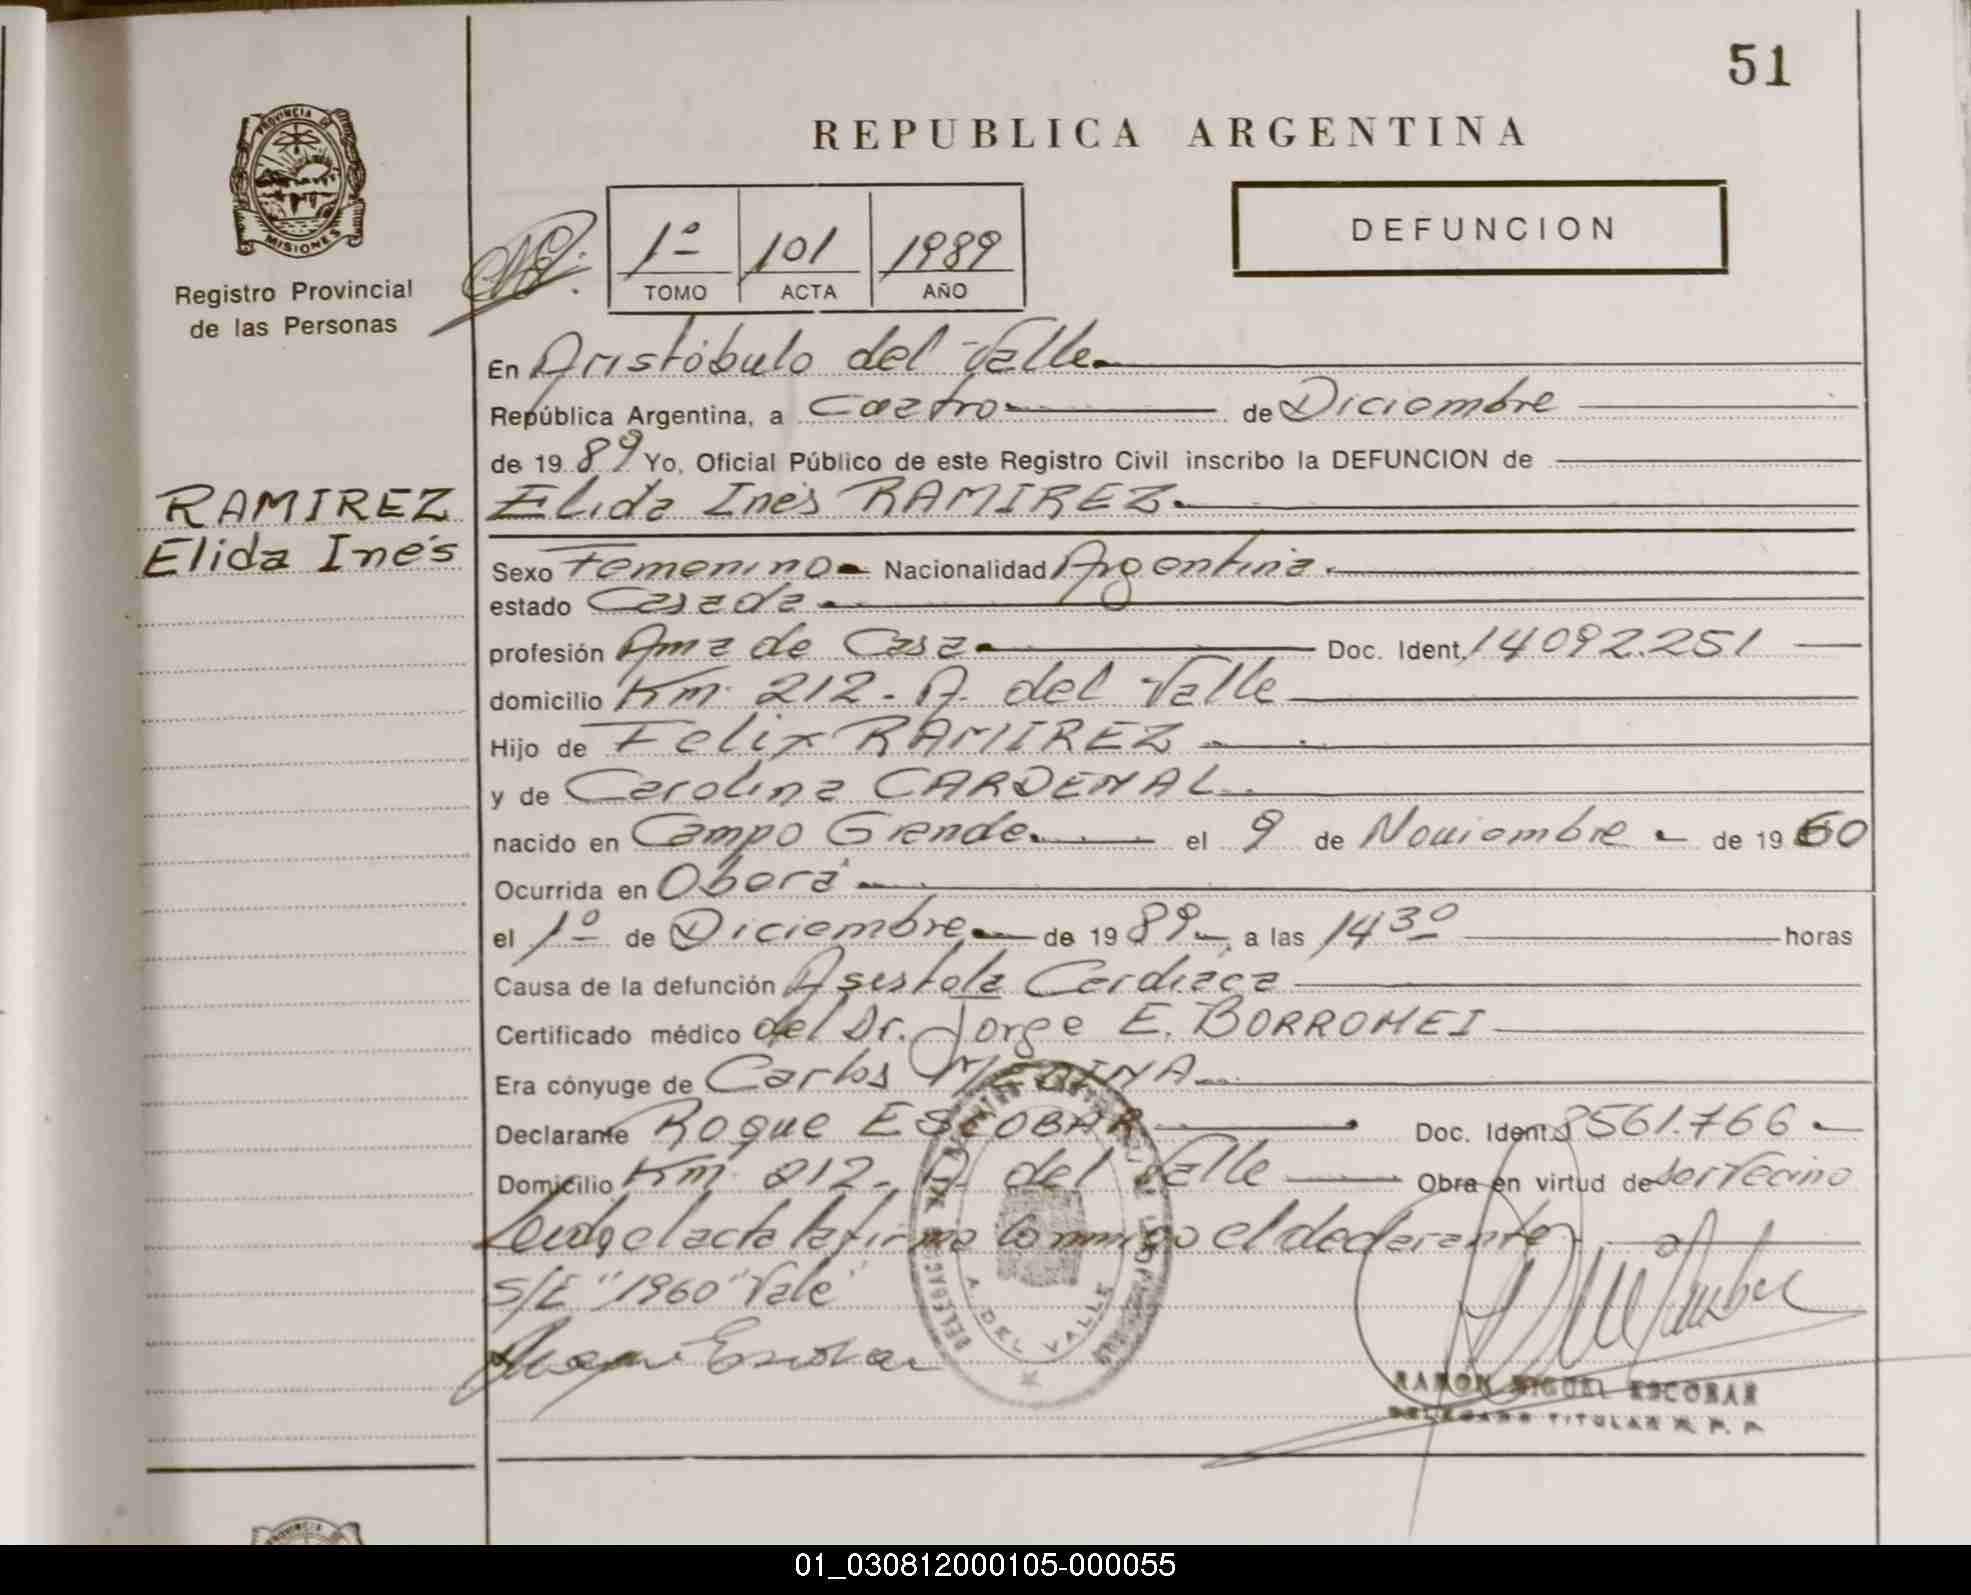 51
PROVINCIA DE
MISIONES
Registro Provincial
de las Personas
REPUBLICA ARGENTINA
1º 101 1989
TOMO ACTA AÑO
DEFUNCION
En Aristóbulo del Valle
República Argentina, a Cuatro de Diciembre
de 19 89 Yo, Oficial Público de este Registro Civil inscribo la DEFUNCION de
RAMIREZ
Elida Inés
Elida Inés RAMIREZ
Sexo Femenino Nacionalidad Argentina
estado Casada
profesión Ama de Casa Doc. Ident. 14092.251
domicilio Km. 212 - A. del Valle
Hijo de Felix RAMIREZ
y de Carolina CARDENAL
nacido en Campo Grande el 9 de Noviembre de 19 60
Ocurrida en Oberá
el 1º de Diciembre de 19 89, a las 14 30 horas
Causa de la defunción Asistola Cardíaca
Certificado médico del Dr. Jorge E. BORROMEI
Era cónyuge de Carlos MEDINA
Declarante Roque ESCOBAR Doc. Ident. 8561.766
Domicilio Km. 212 - A. del Valle Obra en virtud de ser Vecino
Leída el acta la firma conmigo el declarante
S/E "1960" Vale
Roque Escobar
A. DEL VALLE
RAMON MIGUEL ESCOBAR
DELEGADO TITULAR R. P. P.
01_030812000105-000055